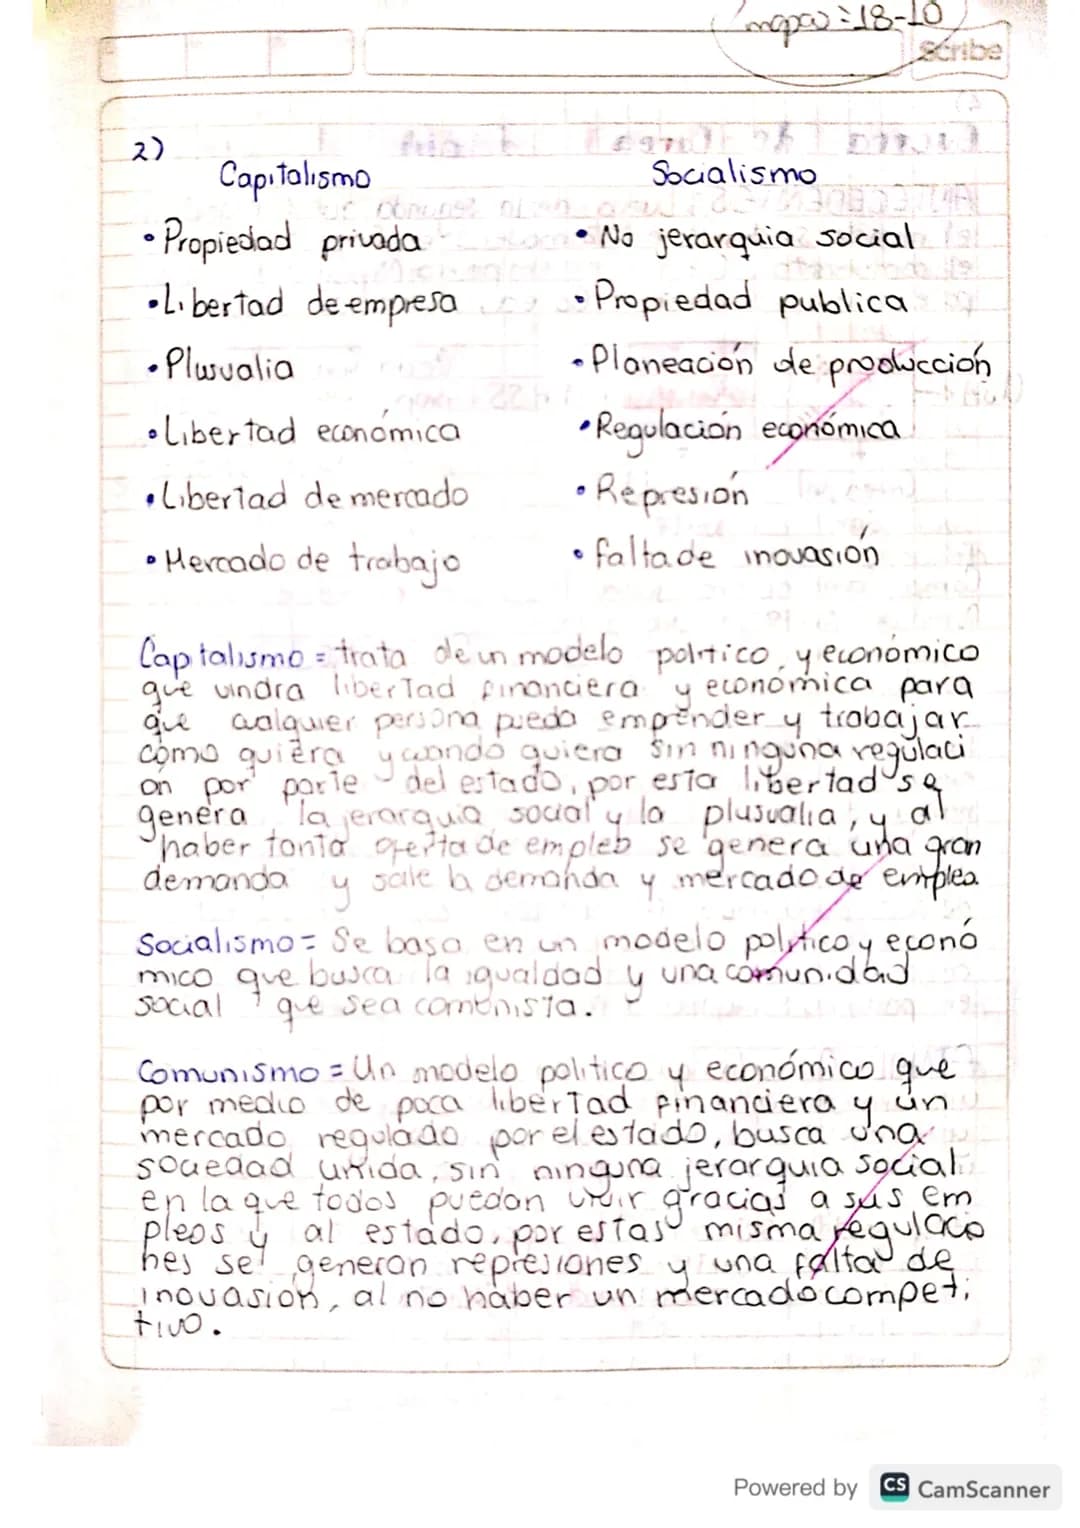 mapas = 18-10
Scribe
2)
Capitalismo
Socialismo
• Propiedad privada
• No jerarquia social
• Libertad de empresa
• Propiedad publica
• Plusvalia
• Planeación de producción
• Libertad económica
• Regulación económica
• Libertad de mercado
• Represión
• Mercado de trabajo
• falta de inovasión
Capitalismo = trata de un modelo politico y económico
que vindra libertad financiera y económica para
que cualquier persona pueda emprender y trabajar
como quiera y cuando quiera sin ninguna regulaci
on por parte del estado, por esta libertad se
genera la jerarquia social y la plusvalia, y al
haber tanta oferta de empleo se genera una gran
demanda y sale la demanda y mercado de emplea
Socialismo = Se basa en un modelo politico y econó
mico que busca la igualdad y una comunidad
social que sea comunista.
Comunismo = Un modelo politico y económico que
por medio de poca libertad financiera y un
mercado regulado por el estado, busca una
sociedad unida, sin ninguna jerarquia social
en la que todos puedan vivir gracias a sus em
pleos y al estado, por estas misma regulacio
nes se generan represiones y una falta de
inovasión, al no haber un mercado competi
tivo.
Powered by CS CamScanner